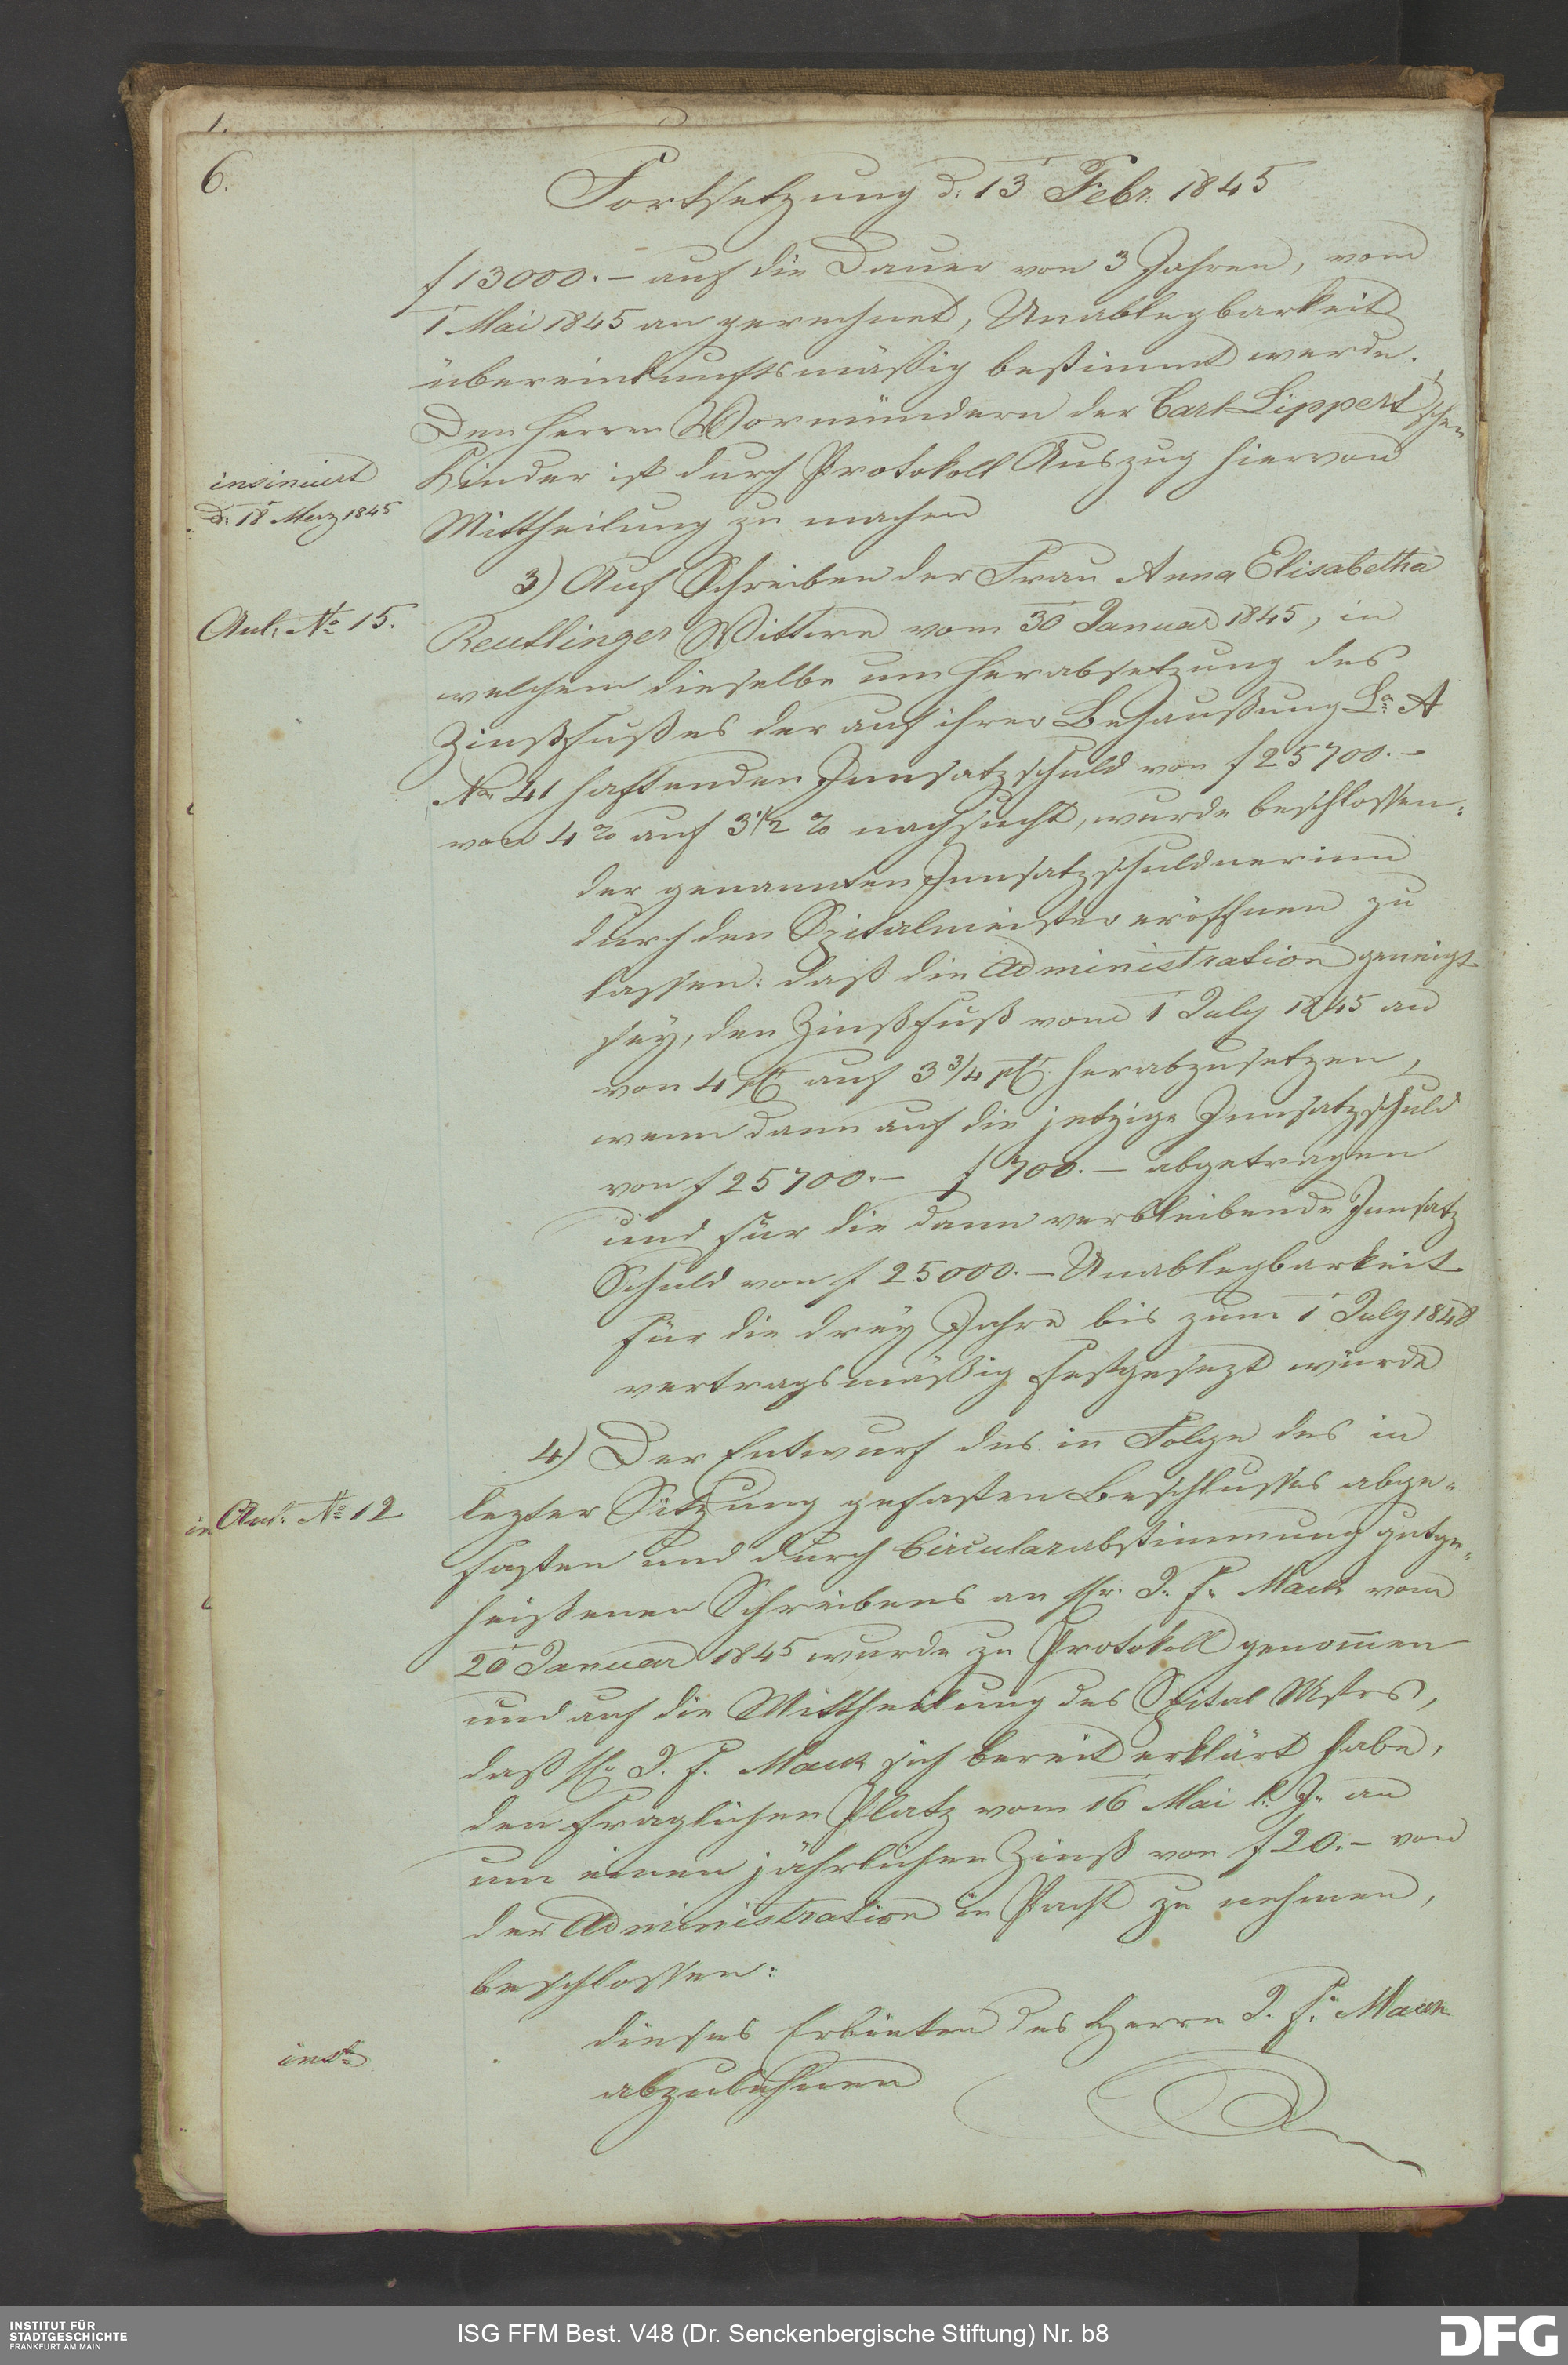 1.
6.
Fortsetzung d: 13 Febr: 1845
f 13000.– auf die Dauer von 3 Jahren, vom
1 Mai 1845 an gerechnet, Unablegbarkeit
übereinkunftsmäßig bestimmt werde.
Den Herren Vormündern der Carl Lippert'schen
Kinder ist durch Protokoll Auszug hiervon
insinuirt
d. 18 Merz 1845
Mittheilung zu machen
3) Auf Schreiben der Frau Anna Elisabetha
Anl: No 15.
Reutlinger Wittwe vom 30 Januar 1845, in
welchem dieselbe um Herabsetzung des
Zinsfußes der auf ihrer Behaußung La A
No 41 haftenden Innsatzschuld von f 25700.–
von 4% auf 3 1/2 % nachsucht, wurde beschlossen:
der genannten Innsatzschuldnerinn
durch den Spitalmeister eröffnen zu
lassen: daß die Administration geneigt
sey, den Zinsfuß vom 1 July 1845 an
von 4 pCt auf 3 3/4 pCt herabzusetzen,
wenn dann auf die jetzige Innsatzschuld
von f 25700.– f 700.– abgetragen
und für die dann verbleibende Innsatz
Schuld von f 25000.– Unablegbarkeit
für die drey Jahre bis zum 1 July 1848
vertragsmäßig festgesezt würde
4) Der Entwurf des in Folge des in
Anl: No 12
lezter Sitzung gefaßten Beschlusses abge-
faßten und durch Circularabstimmung gutge-
heißenen Schreibens an Hr. J. F. Mack vom
20 Januar 1845 wurde zu Protokoll genommen
und auf die Mittheilung des Spital Mstrs,
daß Hr. J. F. Mack sich bereit erklärt habe,
den fraglichen Platz vom 16 Mai l. J. an
um einen jährlichen Zinß von f 20.– von
der Administration in Pacht zu nehmen,
beschlossen:
dieses Erbieten des Herrn J. F. Mack
inst.
abzulehnen
INSTITUT FÜR
STADTGESCHICHTE
FRANKFURT AM MAIN
ISG FFM Best. V48 (Dr. Senckenbergische Stiftung) Nr. b8
DFG